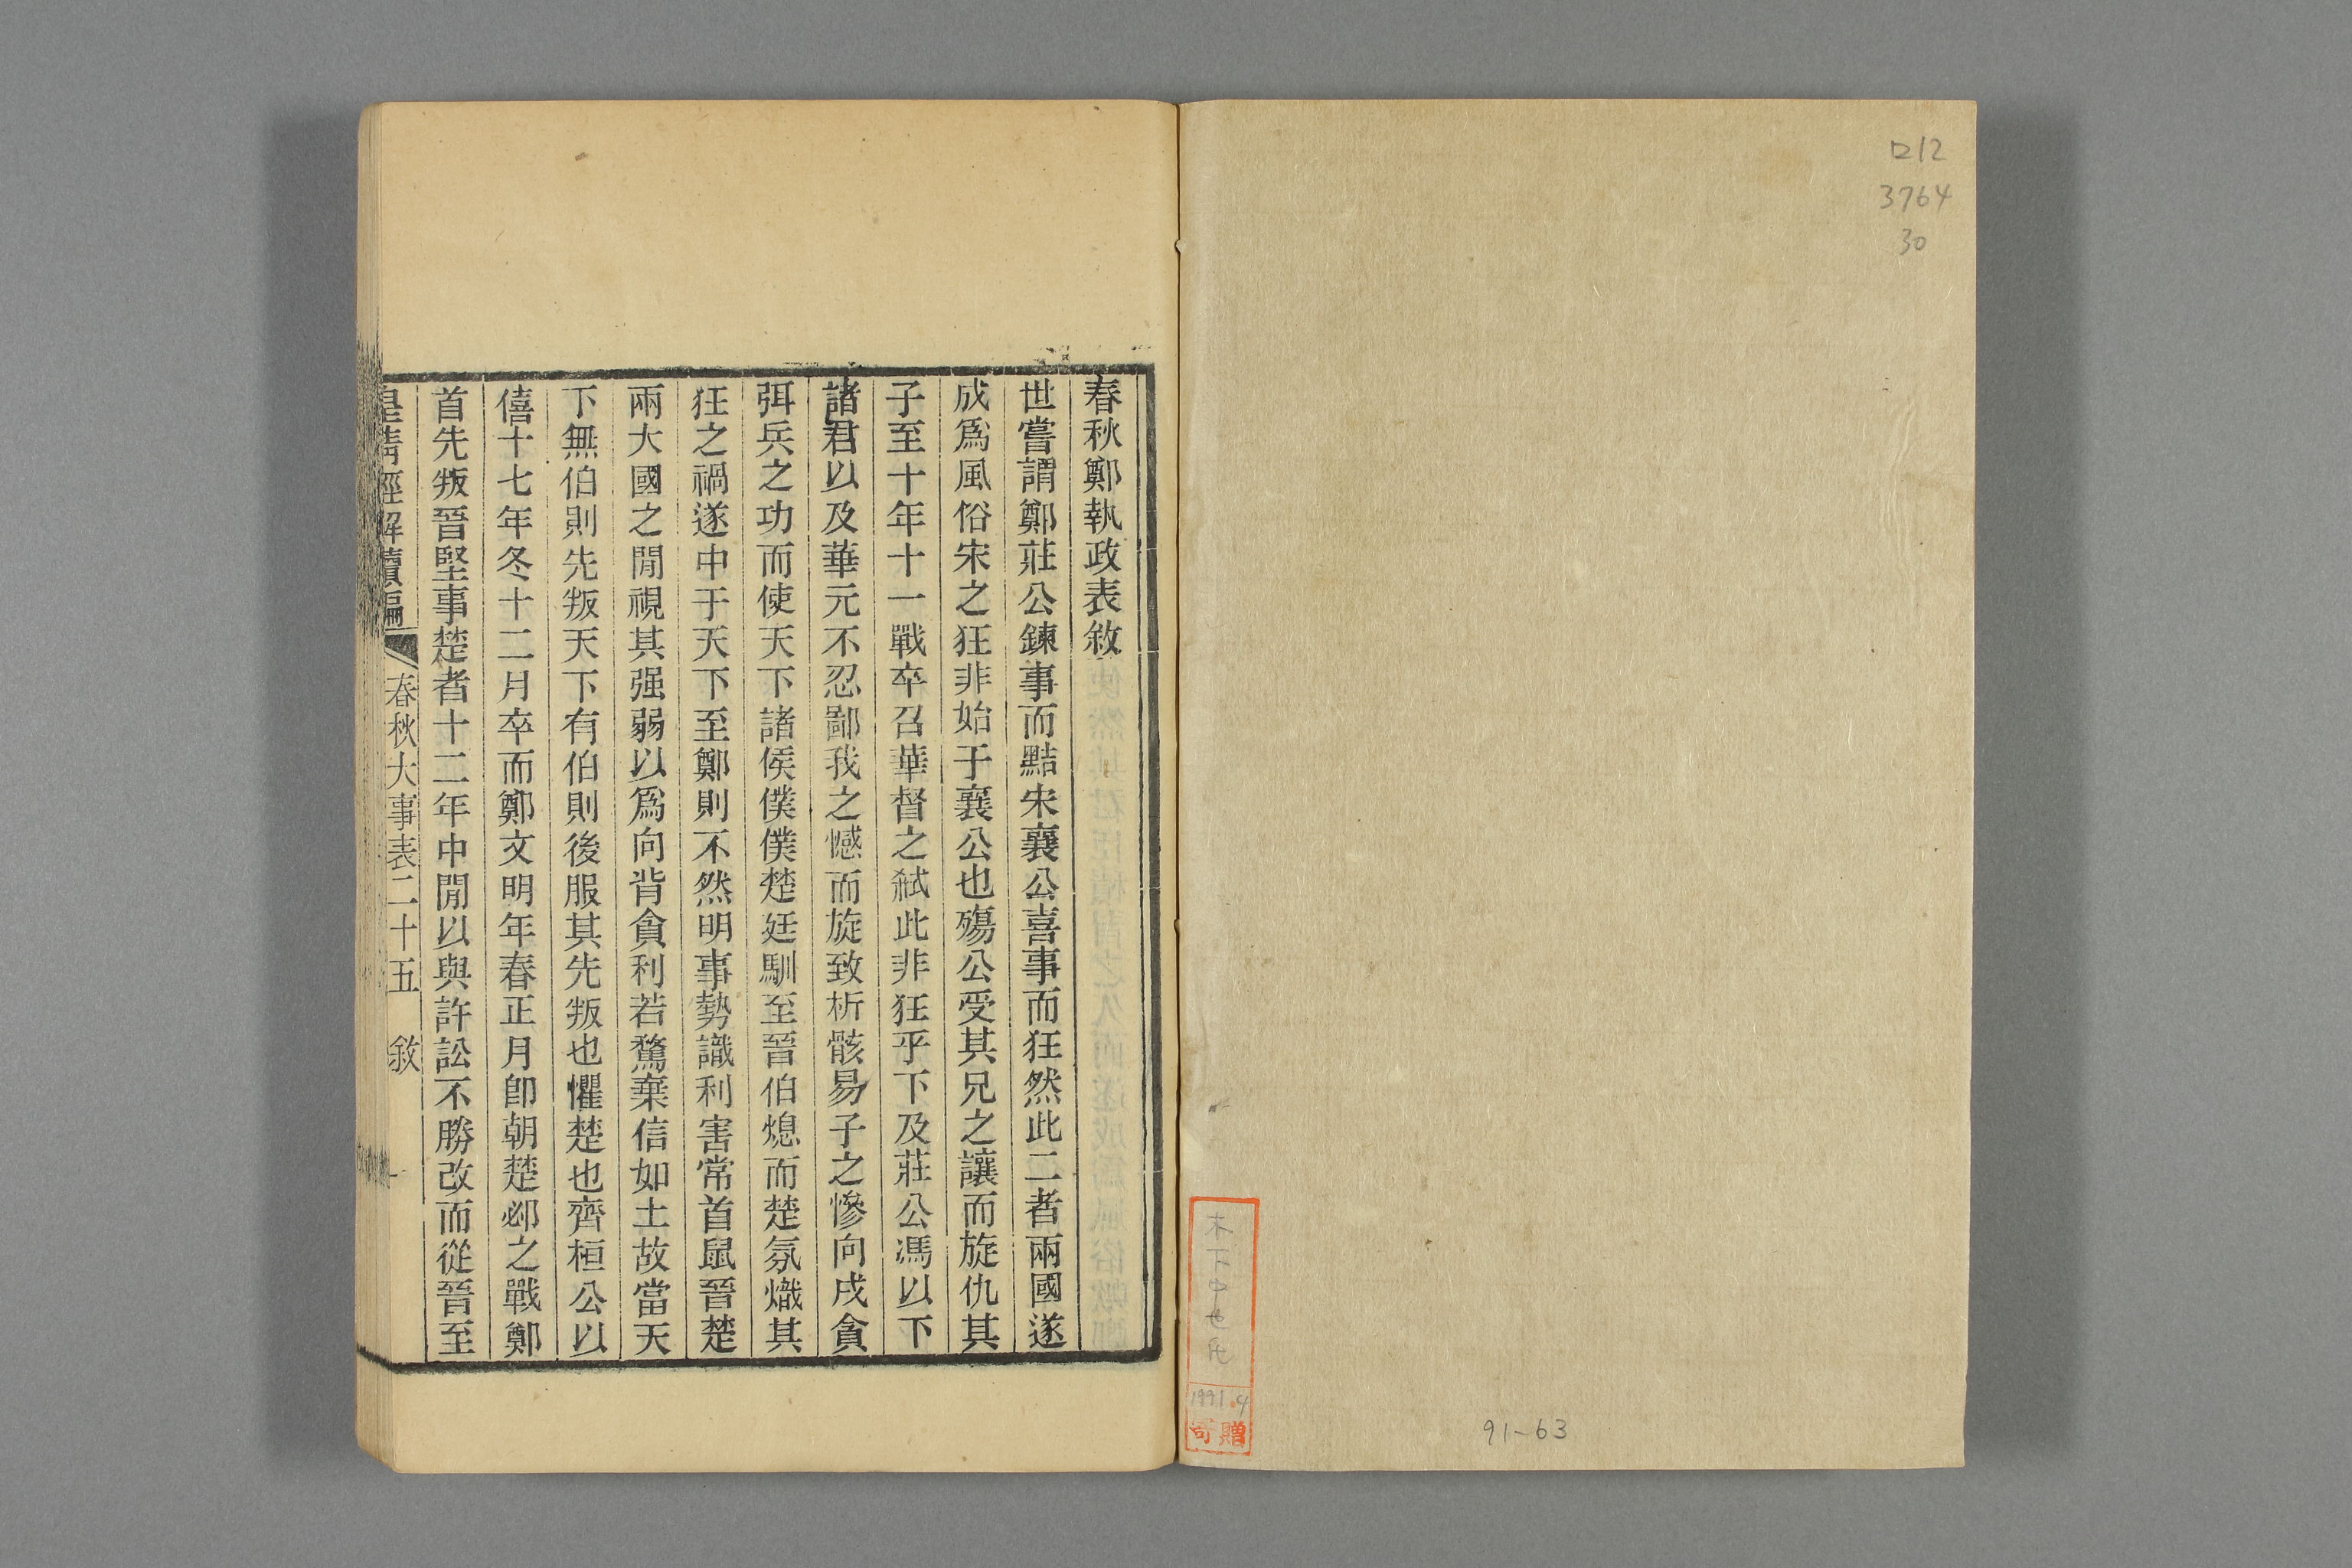 口12
3764
30
木下中也氏
1991.4
寄贈
91-63
春秋鄭執政表敘
世嘗謂鄭莊公鍊事而黠宋襄公喜事而狂然此二者兩國遂
成爲風俗宋之狂非始于襄公也殤公受其兄之讓而旋仇其
子至十年十一戰卒召華督之弒此非狂乎下及莊公馮以下
諸君以及華元不忍鄙我之憾而旋致析骸易子之慘向戌貪
弭兵之功而使天下諸侯僕僕楚廷馴至晉伯熄而楚氛熾其
狂之禍遂中于天下至鄭則不然明事勢識利害常首鼠晉楚
兩大國之閒視其强弱以爲向背貪利若騖棄信如土故當天
下無伯則先叛天下有伯則後服其先叛也懼楚也齊桓公以
僖十七年冬十二月卒而鄭文明年春正月卽朝楚邲之戰鄭
首先叛晉堅事楚者十二年中閒以與許訟不勝改而從晉至
皇清經解續編 春秋大事表二十五 敘 一